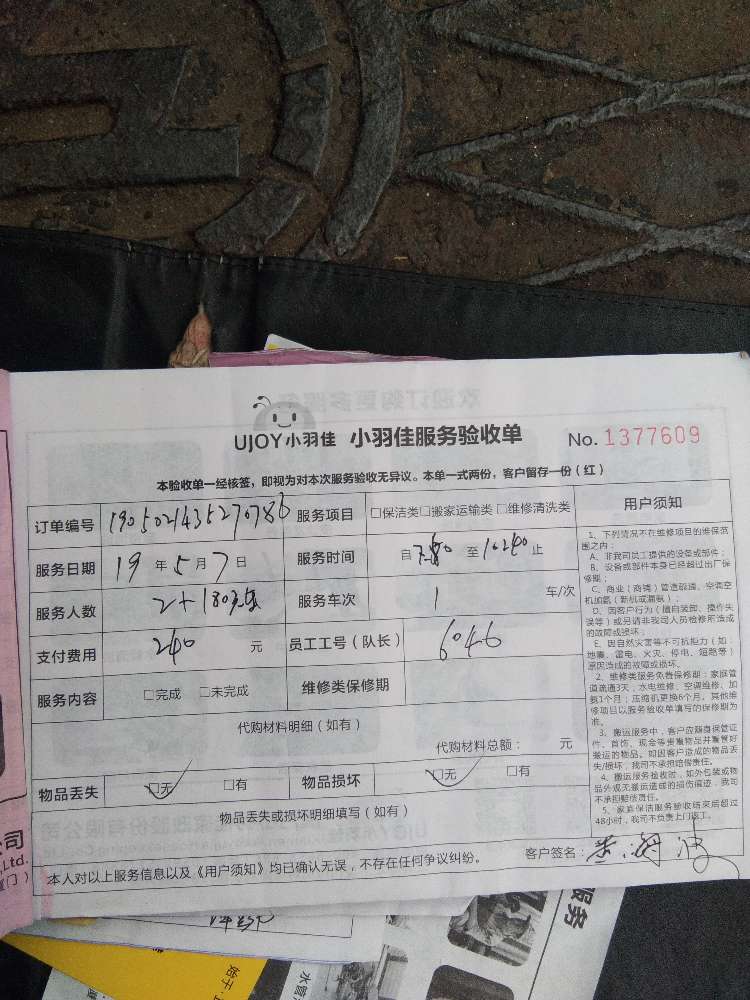 UJOY小羽佳 小羽佳服务验收单 No. 1377609
本验收单一经核签，即视为对本次服务验收无异议。本单一式两份，客户留存一份（红）
订单编号 190502143527078 服务项目 □保洁类□搬家运输类□维修清洗类
服务日期 19 年 5 月 7 日 服务时间 自 至 止
服务人数 2+ 服务车次 1 车/次
支付费用 240 元 员工工号（队长） 6046
服务内容 □完成 □未完成 维修类保修期
代购材料明细（如有）
代购材料总额： 元
物品丢失 □无 □有 物品损坏 □无 □有
物品丢失或损坏明细填写（如有）
本人对以上服务信息以及《用户须知》均已确认无误，不存在任何争议纠纷。
客户签名：
用户须知
1、下列情况不在维修项目的维保范
围之内：
A、非我司员工提供的设备或部件；
B、设备或部件本身已经超过出厂保
修期；
C、商业（商铺）管道疏通、空调空
机加氨（新机或漏氨）；
D、因客户行为（擅自装卸、操作失
误等）或另请非我司人员检修所造成
的故障或损坏；
E、因自然灾害等不可抗拒力（如：
地震、雷电、火灾、停电、短路等）
原因造成的故障或损坏。
2、维修类服务免费保修期：家庭管
道疏通3天，水电维修、空调维修、加
氨1个月；压缩机更换6个月。其他维
修项目以服务验收单填写的保修期为
准。
3、搬运服务中，客户应随身保管证
件、首饰、现金等贵重物品并看管好
搬运的物品。如因客户造成的物品丢
失/损坏，我司不承担赔偿责任。
4、搬运服务验收时，如外包装或物
品外观无搬运造成的损伤痕迹，我司
不承担赔偿责任。
5、家庭保洁服务验收场来后超过
48小时，我司不负责上门返工。
公司
Ltd.
厦门）
服务